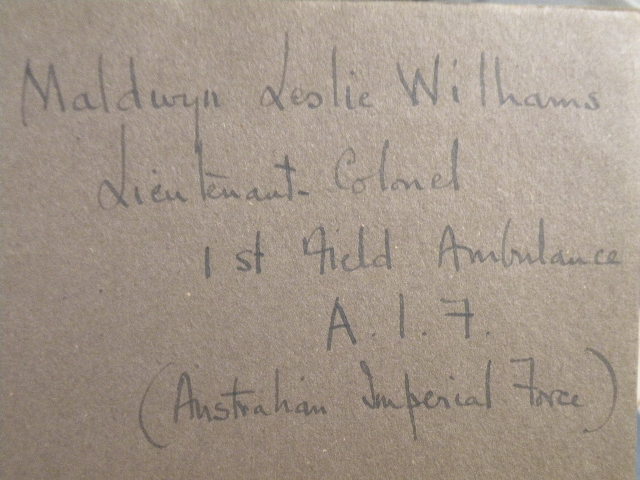 Maldwyn Leslie Williams
Lieutenant-Colonel
1st Field Ambulance
A.I.F.
(Australian Imperial Force)